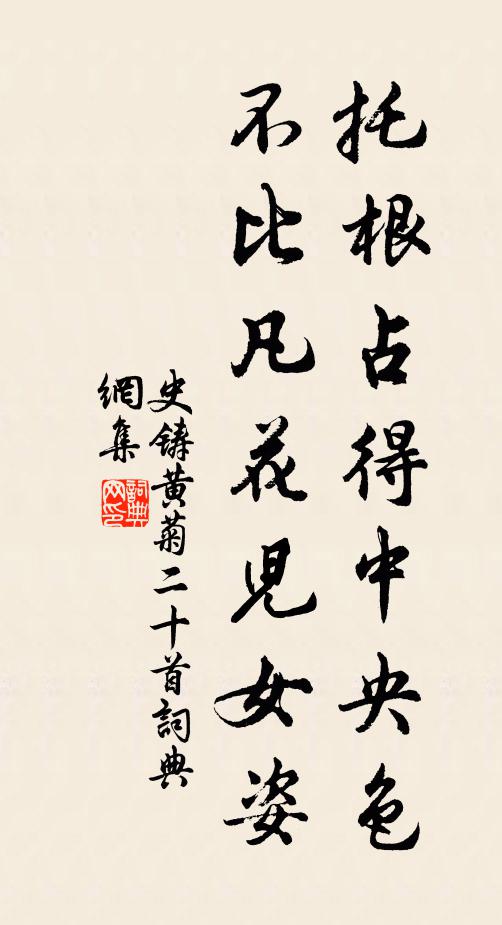 托根占得中央色
不比凡花児女姿
史鑄黃菊二十首詞典
網集
詞典
网印